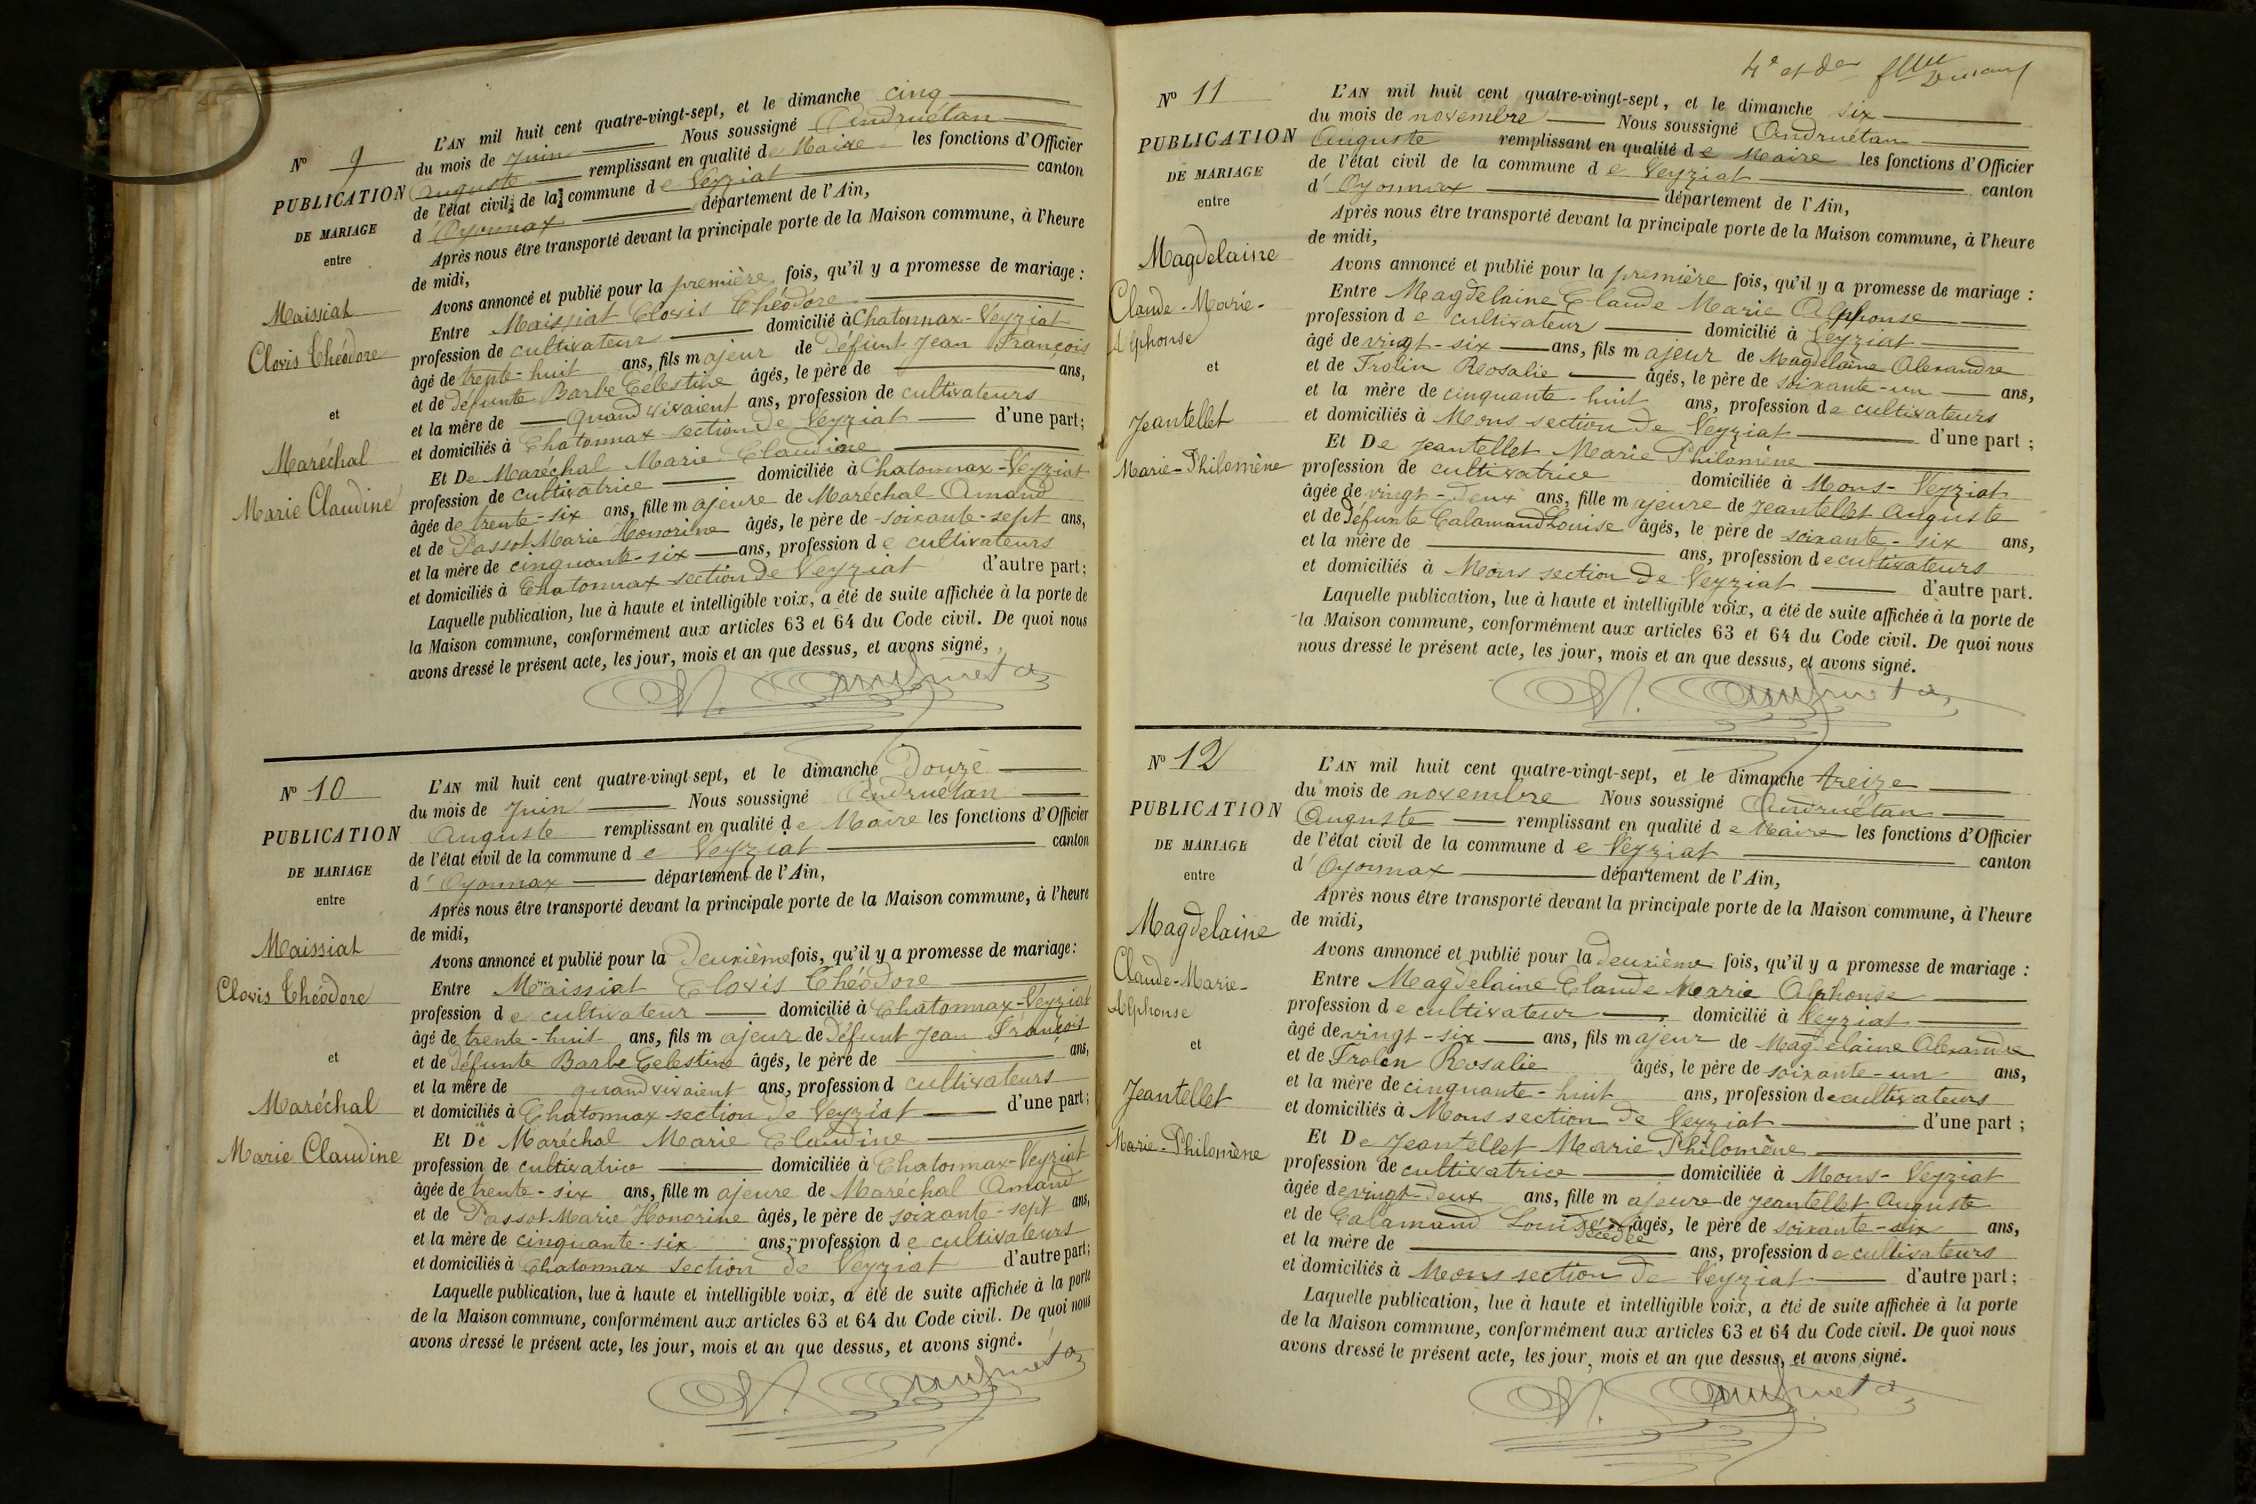 Nº 9
PUBLICATION
DE MARIAGE
entre
Maissiat
Clovis Théodore
et
Maréchal
Marie Claudine
L'AN mil huit cent quatre-vingt-sept, et le dimanche cinq
du mois de Juin Nous soussigné Andruétan
Auguste remplissant en qualité de Maire les fonctions d'Officier
de l'état civil de la commune de Veyziat canton
d'Oyonnax département de l'Ain,
Après nous être transporté devant la principale porte de la Maison commune, à l'heure
de midi,
Avons annoncé et publié pour la première fois, qu'il y a promesse de mariage :
Entre Maissiat Clovis Théodore
profession de cultivateur domicilié à Chatonnax-Veyziat
âgé de trente-huit ans, fils majeur de Défunt Jean François
et de défunte Barbe Celestine âgés, le père de ans,
et la mère de quand vivaient ans, profession de cultivateurs
et domiciliés à Chatonnax section de Veyziat d'une part;
Et De Maréchal Marie Claudine
profession de cultivatrice domiciliée à Chatonnax-Veyziat
âgée de trente-six ans, fille majeure de Maréchal Amand
et de Passot Marie Honorine âgés, le père de soixante-sept ans,
et la mère de cinquante-six ans, profession de cultivateurs
et domiciliés à Chatonnax section de Veyziat d'autre part;
Laquelle publication, lue à haute et intelligible voix, a été de suite affichée à la porte de
la Maison commune, conformément aux articles 63 et 64 du Code civil. De quoi nous
avons dressé le présent acte, les jour, mois et an que dessus, et avons signé,
A. Andruetan
Nº 10
PUBLICATION
DE MARIAGE
entre
Maissiat
Clovis Théodore
et
Maréchal
Marie Claudine
L'AN mil huit cent quatre-vingt sept, et le dimanche Douze
du mois de Juin Nous soussigné Andruétan
Auguste remplissant en qualité de Maire les fonctions d'Officier
de l'état civil de la commune de Veyziat canton
d'Oyonnax département de l'Ain,
Après nous être transporté devant la principale porte de la Maison commune, à l'heure
de midi,
Avons annoncé et publié pour la Deuxième fois, qu'il y a promesse de mariage:
Entre Maissiat Clovis Théodore
profession de cultivateur domicilié à Chatonnax-Veyziat
âgé de trente-huit ans, fils majeur de Défunt Jean François
et de défunte Barbe Celestine âgés, le père de ans,
et la mère de quand vivaient ans, profession d cultivateurs
et domiciliés à Chatonnax section de Veyziat d'une part;
Et De Maréchal Marie Claudine
profession de cultivatrice domiciliée à Chatonnax-Veyziat
âgée de trente-six ans, fille majeure de Maréchal Amand
et de Passot Marie Honorine âgés, le père de soixante-sept ans,
et la mère de cinquante-six ans, profession de cultivateurs
et domiciliés à Chatonnax section de Veyziat d'autre part;
Laquelle publication, lue à haute et intelligible voix, a été de suite affichée à la porte
de la Maison commune, conformément aux articles 63 et 64 du Code civil. De quoi nous
avons dressé le présent acte, les jour, mois et an que dessus, et avons signé.
A. Andruetan
4e et der
Nº 11
PUBLICATION
DE MARIAGE
entre
Magdelaine
Claude-Marie-
Alphonse
et
Jeantellet
Marie-Philomène
L'AN mil huit cent quatre-vingt-sept, et le dimanche six
du mois de novembre Nous soussigné Andruétan
Auguste remplissant en qualité de Maire les fonctions d'Officier
de l'état civil de la commune de Veyziat canton
d'Oyonnax département de l'Ain,
Après nous être transporté devant la principale porte de la Maison commune, à l'heure
de midi,
Avons annoncé et publié pour la première fois, qu'il y a promesse de mariage :
Entre Magdelaine Claude Marie Alphonse
profession de cultivateur domicilié à Veyziat
âgé de vingt-six ans, fils majeur de Magdelaine Alexandre
et de Frolin Rosalie âgés, le père de soixante-un ans,
et la mère de cinquante-huit ans, profession de cultivateurs
et domiciliés à Mons section de Veyziat d'une part ;
Et De Jeantellet Marie Philomène
profession de cultivatrice domiciliée à Mons-Veyziat
âgée de vingt-deux ans, fille majeure de Jeantellet Auguste
et de Défunte Calamand Louise âgés, le père de soixante-six ans,
et la mère de ans, profession de cultivateurs
et domiciliés à Mons section de Veyziat d'autre part.
Laquelle publication, lue à haute et intelligible voix, a été de suite affichée à la porte de
la Maison commune, conformément aux articles 63 et 64 du Code civil. De quoi nous
nous dressé le présent acte, les jour, mois et an que dessus, et avons signé.
A. Andruetan
Nº 12
PUBLICATION
DE MARIAGE
entre
Magdelaine
Claude-Marie-
Alphonse
et
Jeantellet
Marie-Philomène
L'AN mil huit cent quatre-vingt-sept, et le dimanche treize
du mois de novembre Nous soussigné Andruétan
Auguste remplissant en qualité de Maire les fonctions d'Officier
de l'état civil de la commune de Veyziat canton
d'Oyonnax département de l'Ain,
Après nous être transporté devant la principale porte de la Maison commune, à l'heure
de midi,
Avons annoncé et publié pour la deuxième fois, qu'il y a promesse de mariage :
Entre Magdelaine Claude Marie Alphonse
profession de cultivateur domicilié à Veyziat
âgé de vingt-six ans, fils majeur de Magdelaine Alexandre
et de Frolin Rosalie âgés, le père de soixante-un ans,
et la mère de cinquante-huit ans, profession de cultivateurs
et domiciliés à Mons section de Veyziat d'une part ;
Et De Jeantellet Marie Philomène
profession de cultivatrice domiciliée à Mons-Veyziat
âgée de vingt-deux ans, fille majeure de Jeantellet Auguste
et de Calamand Louise décédée âgés, le père de soixante-six ans,
et la mère de ans, profession de cultivateurs
et domiciliés à Mons section de Veyziat d'autre part ;
Laquelle publication, lue à haute et intelligible voix, a été de suite affichée à la porte
de la Maison commune, conformément aux articles 63 et 64 du Code civil. De quoi nous
avons dressé le présent acte, les jour, mois et an que dessus, et avons signé.
A. Andruetan